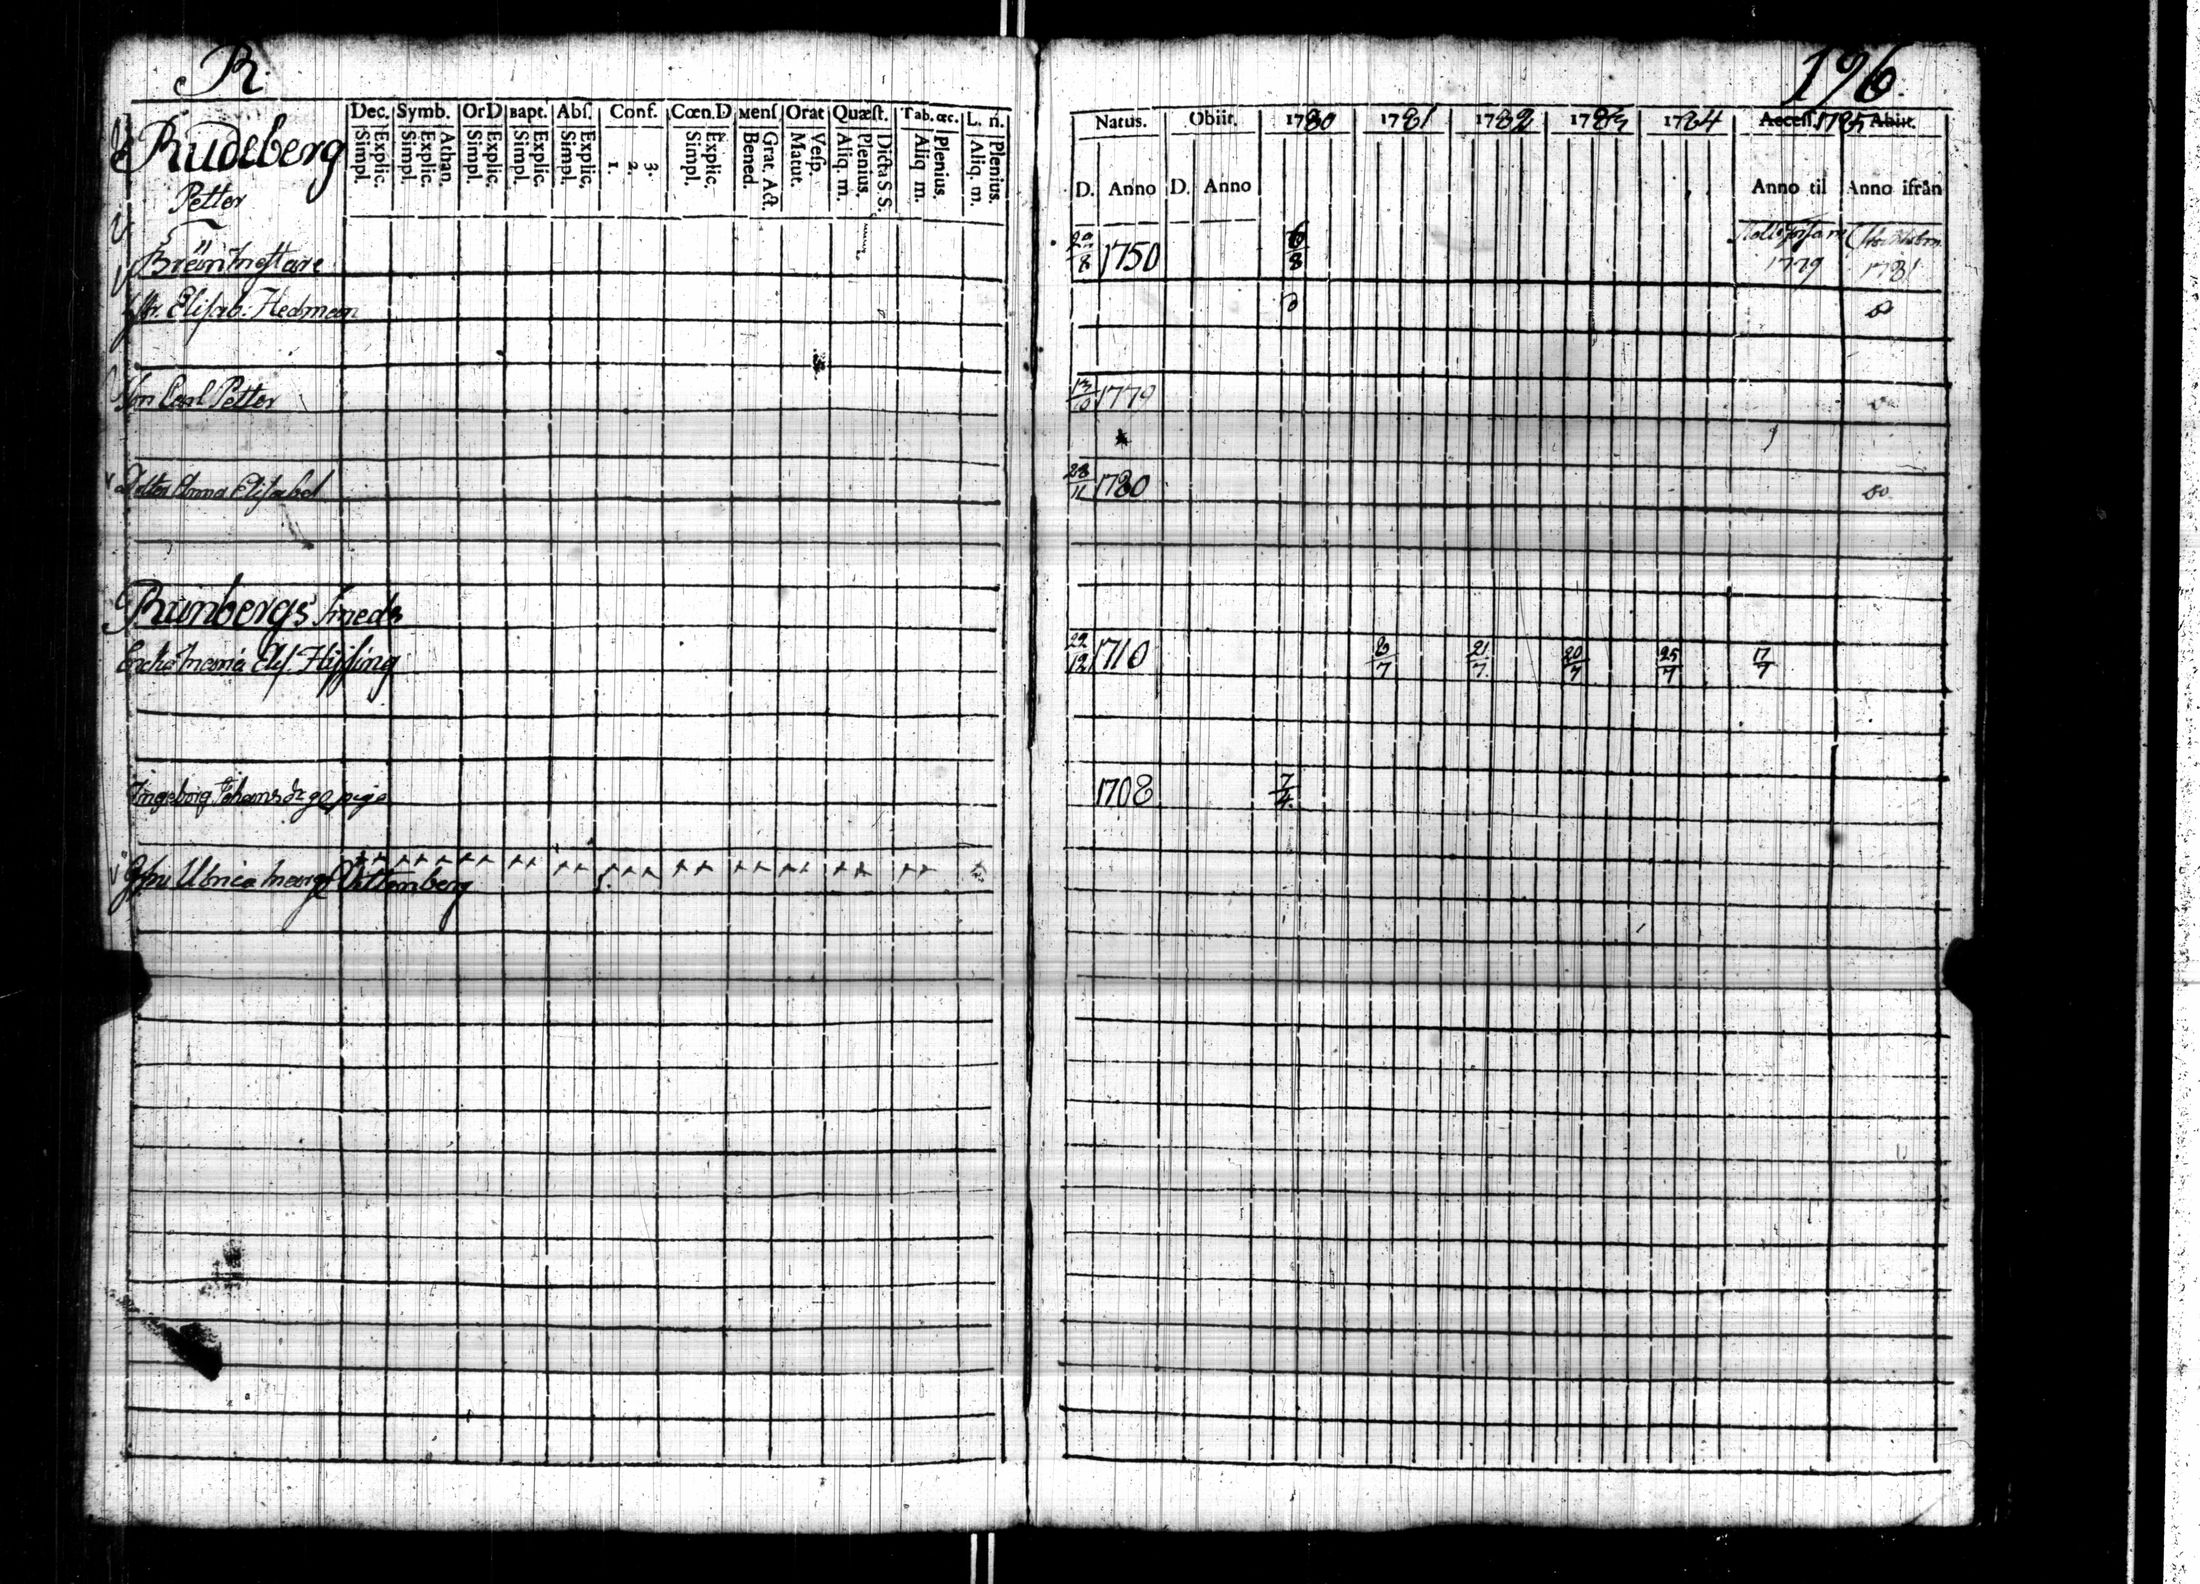 R.
196.
Dec. Symb. Or D Bapt. Abſ. Conf. Cœn. D Menſ Orat Quæſt. Tab. œc. L. ń.
Simpl. Explic. Simpl. Explic. Athan. Simpl. Explic. Simpl. Explic. Simpl. Explic. 1. 2. 3. Simpl. Explic. Bened. Grat. Act. Matut. Veſp. Aliq. m. Plenius. Dicta S. S. Aliq. m. Plenius. Aliq. m. Plenius.
Natus. Obiit. 1780 1781 1782 1783 1784 Acceſſ. 1785 Abiit.
D. Anno D. Anno Anno til Anno ifrån
Rudeberg
Petter
29/8 1750 6/8 1779 1781
Elisab. Hedman
Son Carl Petter 13/10 1779
Anna Elisabet 28/11 1780
Runbergs smeds
Enka Maria Elis. Hissing 22/12 1710 8/7 21/7 20/7 25/7 17/7
Ingeborg Johansdr piga 1708 7/4
Ulrica Marg. Wittenberg